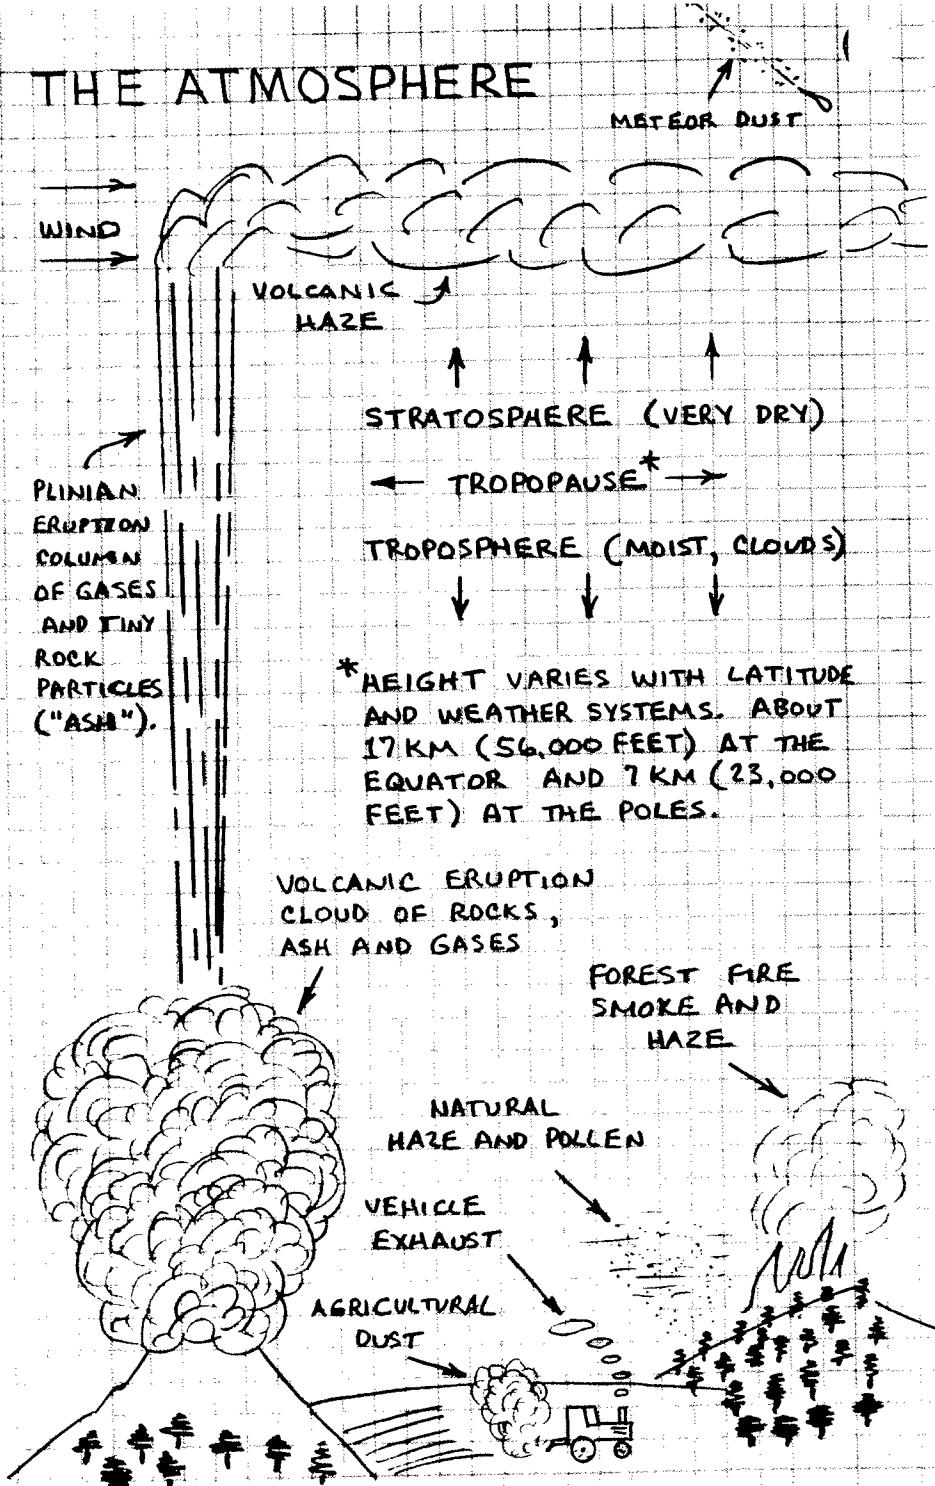 THE ATMOSPHERE
METEOR DUST
WIND
VOLCANIC
HAZE
STRATOSPHERE (VERY DRY)
TROPOPAUSE*
TROPOSPHERE (MOIST, CLOUDS)
PLINIAN
ERUPTION
COLUMN
OF GASES
AND TINY
ROCK
PARTICLES
("ASH").
*HEIGHT VARIES WITH LATITUDE
AND WEATHER SYSTEMS. ABOUT
17 KM (56,000 FEET) AT THE
EQUATOR AND 7 KM (23,000
FEET) AT THE POLES.
VOLCANIC ERUPTION
CLOUD OF ROCKS,
ASH AND GASES
FOREST FIRE
SMOKE AND
HAZE
NATURAL
HAZE AND POLLEN
VEHICLE
EXHAUST
AGRICULTURAL
DUST